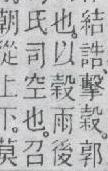 結誥。擊穀。郭
也。以穀雨後
氏司空也。召
朝從上下。莫